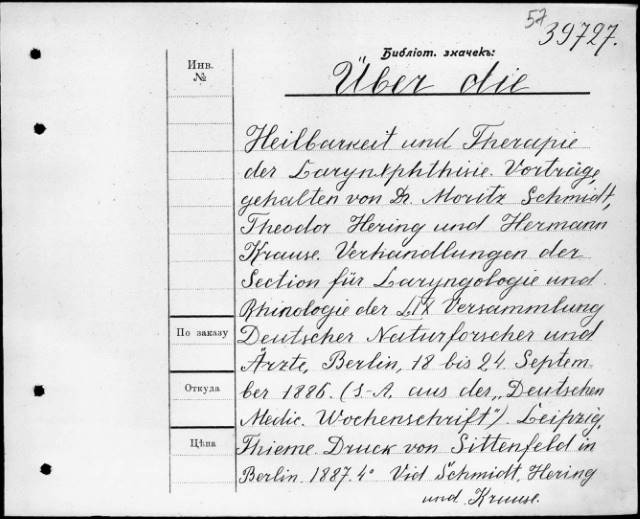 57
39727.
Библіот. значекъ:
Инв.
№
Über die
Heilbarkeit und Therapie
der Larynxphthisie. Vorträge,
gehalten von Dr. Moritz Schmidt,
Theodor Hering und Hermann
Krause. Verhandlungen der
Section für Laryngologie und
Rhinologie der LIX Versammlung
По заказу
Deutscher Naturforscher und
Ärzte, Berlin, 18 bis 24. Septem-
Откуда
ber 1886. (S.-A. aus des „Deutschen
Medic. Wochenschrift"). Leipzig,
Цѣна
Thieme. Druck von Sittenfeld in
Berlin. 1887. 4° Vid Schmidt, Hering
und Krause.